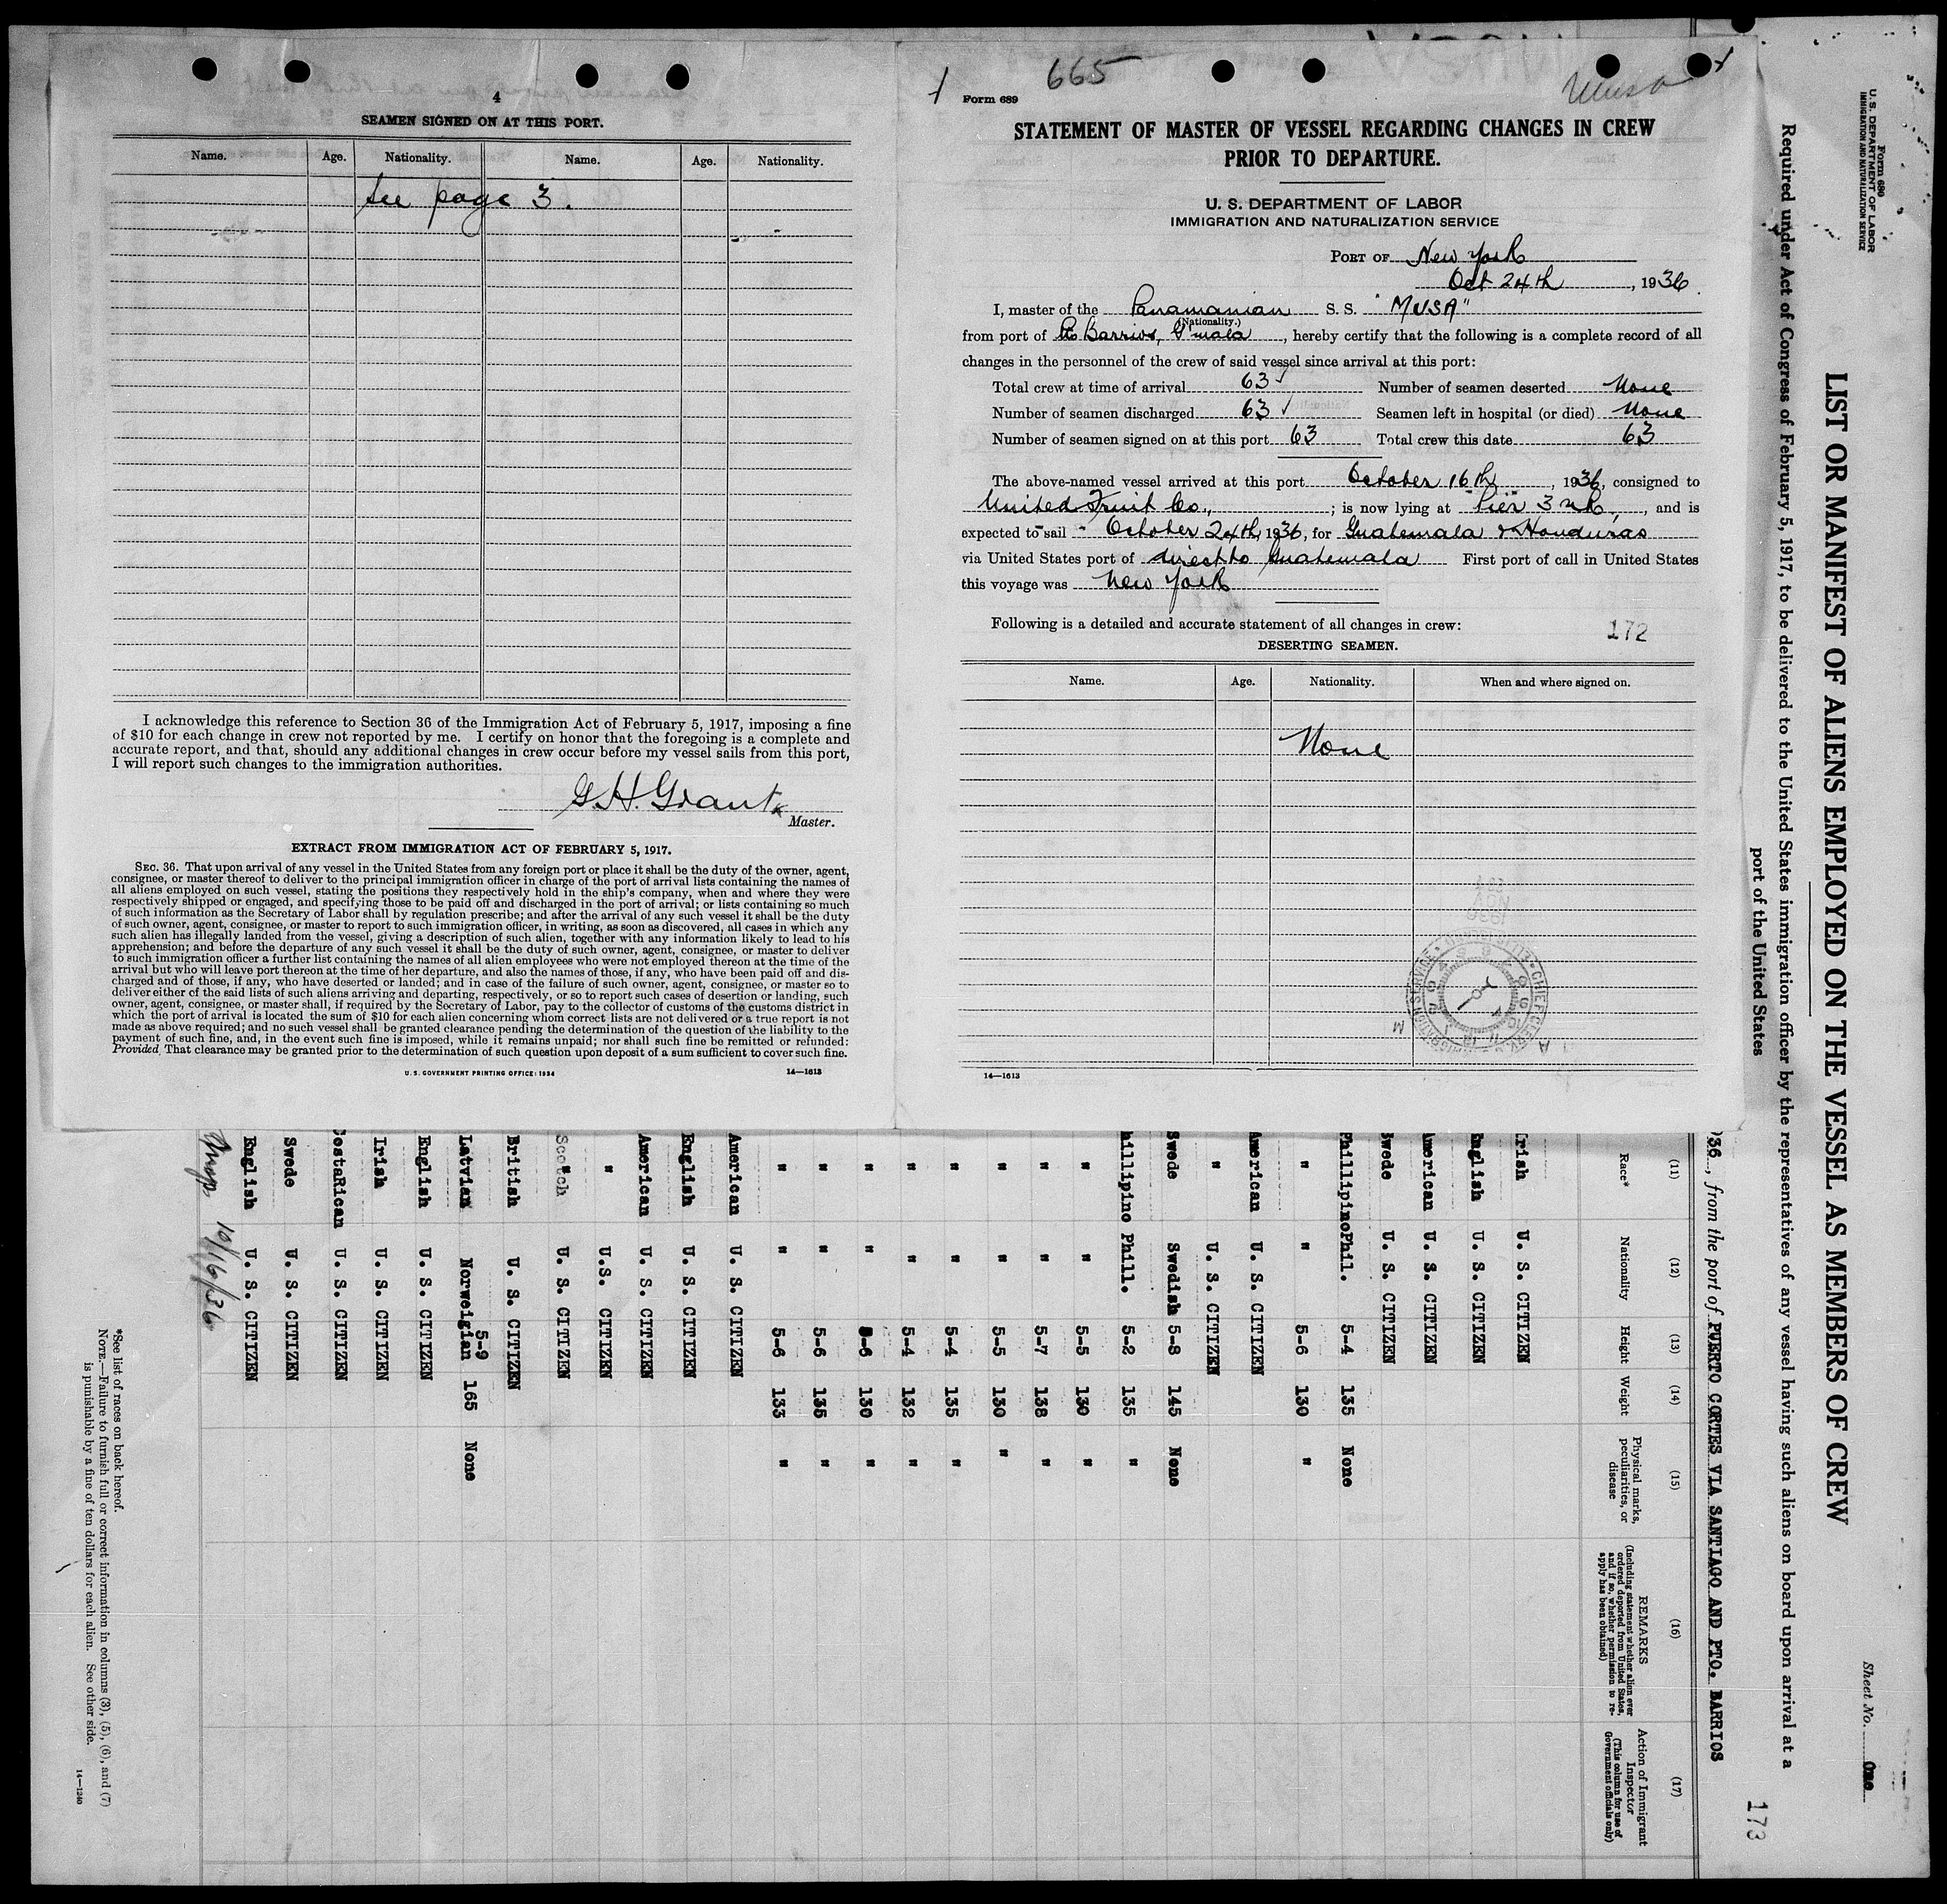 4
SEAMEN SIGNED ON AT THIS PORT.
Name. Age. Nationality. Name. Age. Nationality.
See page 3.
I acknowledge this reference to Section 36 of the Immigration Act of February 5, 1917, imposing a fine
of $10 for each change in crew not reported by me. I certify on honor that the foregoing is a complete and
accurate report, and that, should any additional changes in crew occur before my vessel sails from this port,
I will report such changes to the immigration authorities.
G. H. Grant
Master.
EXTRACT FROM IMMIGRATION ACT OF FEBRUARY 5, 1917.
SEC. 36. That upon arrival of any vessel in the United States from any foreign port or place it shall be the duty of the owner, agent,
consignee, or master thereof to deliver to the principal immigration officer in charge of the port of arrival lists containing the names of
all aliens employed on such vessel, stating the positions they respectively hold in the ship's company, when and where they were
respectively shipped or engaged, and specifying those to be paid off and discharged in the port of arrival; or lists containing so much
of such information as the Secretary of Labor shall by regulation prescribe; and after the arrival of any such vessel it shall be the duty
of such owner, agent, consignee, or master to report to such immigration officer, in writing, as soon as discovered, all cases in which any
such alien has illegally landed from the vessel, giving a description of such alien, together with any information likely to lead to his
apprehension; and before the departure of any such vessel it shall be the duty of such owner, agent, consignee, or master to deliver
to such immigration officer a further list containing the names of all alien employees who were not employed thereon at the time of the
arrival but who will leave port thereon at the time of her departure, and also the names of those, if any, who have been paid off and dis-
charged and of those, if any, who have deserted or landed; and in case of the failure of such owner, agent, consignee, or master so to
deliver either of the said lists of such aliens arriving and departing, respectively, or so to report such cases of desertion or landing, such
owner, agent, consignee, or master shall, if required by the Secretary of Labor, pay to the collector of customs of the customs district in
which the port of arrival is located the sum of $10 for each alien concerning whom correct lists are not delivered or a true report is not
made as above required; and no such vessel shall be granted clearance pending the determination of the question of the liability to the
payment of such fine, and, in the event such fine is imposed, while it remains unpaid; nor shall such fine be remitted or refunded:
Provided, That clearance may be granted prior to the determination of such question upon deposit of a sum sufficient to cover such fine.
U. S. GOVERNMENT PRINTING OFFICE: 1934 14—1613
1 665 Musa
Form 689
STATEMENT OF MASTER OF VESSEL REGARDING CHANGES IN CREW
PRIOR TO DEPARTURE.
U. S. DEPARTMENT OF LABOR
IMMIGRATION AND NATURALIZATION SERVICE
PORT OF New York
Oct 24th, 1936.
I, master of the Panamanian S. S. "MUSA"
(Nationality.)
from port of Pto Barrios, G'mala, hereby certify that the following is a complete record of all
changes in the personnel of the crew of said vessel since arrival at this port:
Total crew at time of arrival 63 Number of seamen deserted None
Number of seamen discharged 63 Seamen left in hospital (or died) None
Number of seamen signed on at this port 63 Total crew this date 63
The above-named vessel arrived at this port October 16th, 1936, consigned to
United Fruit Co., ; is now lying at Pier 3 , and is
expected to sail October 24th, 1936, for Guatemala & Honduras
via United States port of direct to Guatemala First port of call in United States
this voyage was New York
Following is a detailed and accurate statement of all changes in crew:
172
DESERTING SEAMEN.
Name. Age. Nationality. When and where signed on.
None
14—1613
Form 680
U. S. DEPARTMENT OF LABOR
IMMIGRATION AND NATURALIZATION SERVICE
Sheet No. One
LIST OR MANIFEST OF ALIENS EMPLOYED ON THE VESSEL AS MEMBERS OF CREW
Required under Act of Congress of February 5, 1917, to be delivered to the United States immigration officer by the representatives of any vessel having such aliens on board upon arrival at a
port of the United States
173
36, from the port of PUERTO CORTES VIA SANTIAGO AND PTO. BARRIOS
(11) (12) (13) (14) (15) (16) (17)
Race* Nationality Height Weight Physical marks, peculiarities, or disease REMARKS (Including statement whether alien ever ordered deported from United States, and if so, whether permission to re-apply has been obtained) Action of Immigrant Inspector (This column for use of Government officials only)
rish U. S. CITIZEN
nglish U. S. CITIZEN
merican U. S. CITIZEN
Swede U. S. CITIZEN
PhillipinoPhil. 5-4 135 None
" " 5-6 130 "
American U. S. CITIZEN
" U. S. CITIZEN
Swede Swedish 5-8 145 None
hillipino Phill. 5-2 135 "
" " 5-5 130 "
" " 5-7 138 "
" " 5-5 130 "
" " 5-4 135 "
" " 5-4 132 "
" " 5-6 130 "
" " 5-6 135 "
" " 5-6 133 "
American U. S. CITIZEN
English U. S. CITIZEN
American U. S. CITIZEN
" U.S. CITIZEN
Scotch U. S. CITIZEN
British U. S. CITIZEN
Latvian Norweigian 5-9 165 None
English U. S. CITIZEN
Irish U. S. CITIZEN
CostaRican U. S. CITIZEN
Swede U. S. CITIZEN
English U. S. CITIZEN
10/16/36
*See list of races on back hereof.
NOTE.—Failure to furnish full or correct information in columns (3), (5), (6), and (7)
is punishable by a fine of ten dollars for each alien. See other side.
14—1240